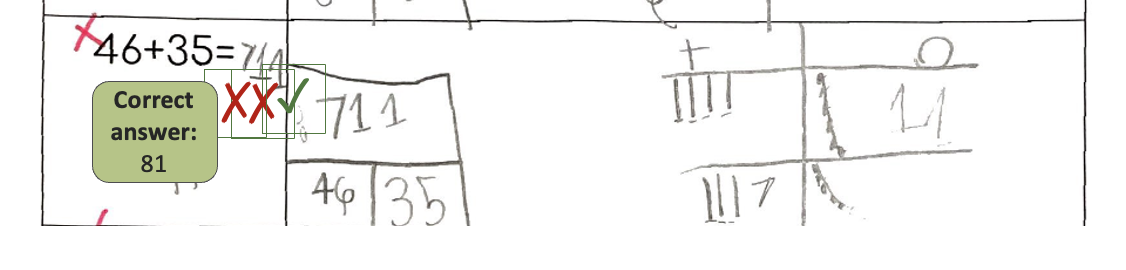 46+35=711
Correct
answer:
81
711
46 35
+ O
11
7